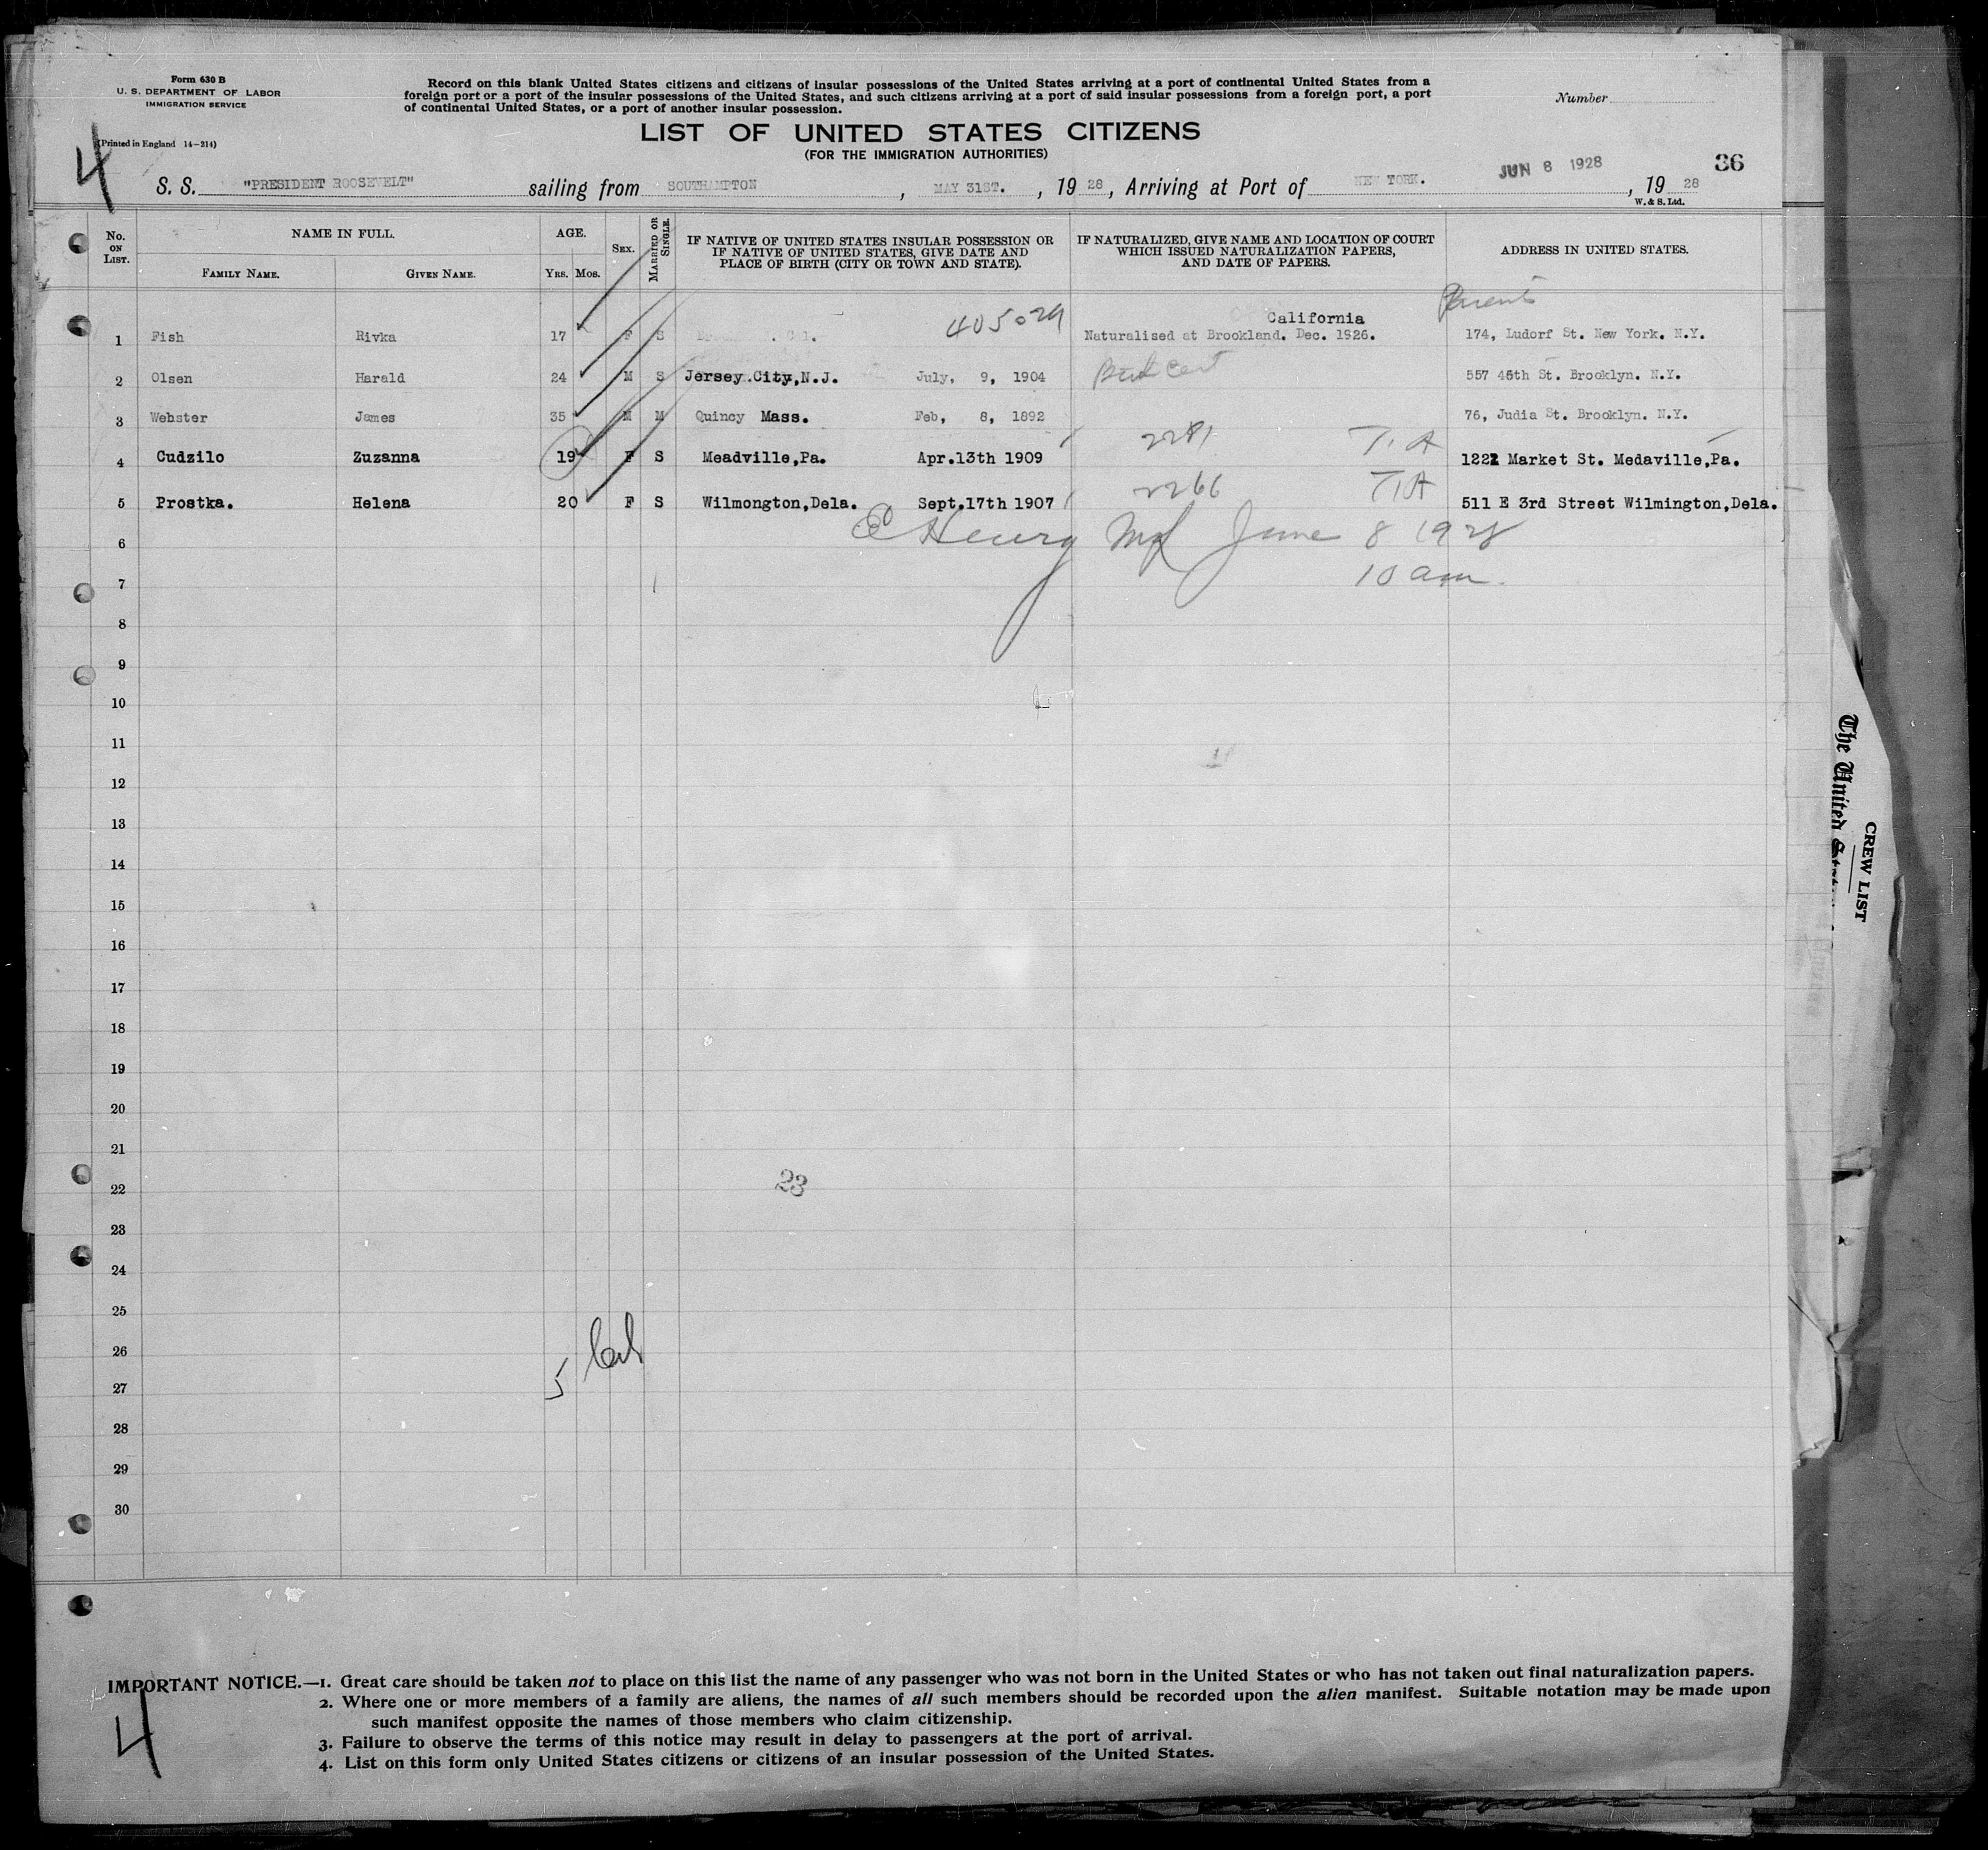 Form 630 B
U. S. DEPARTMENT OF LABOR
IMMIGRATION SERVICE
(Printed in England 14-214)
Record on this blank United States citizens and citizens of insular possessions of the United States arriving at a port of continental United States from a
foreign port or a port of the insular possessions of the United States, and such citizens arriving at a port of said insular possessions from a foreign port, a port
of continental United States, or a port of another insular possession.
Number
LIST OF UNITED STATES CITIZENS
(FOR THE IMMIGRATION AUTHORITIES)
4
36
S. S. "PRESIDENT ROOSEVELT" sailing from SOUTHAMPTON, MAY 31ST., 1928, Arriving at Port of NEW YORK. JUN 8 1928, 1928
W. & S. Ltd.
No. ON LIST. NAME IN FULL. FAMILY NAME. GIVEN NAME. AGE. YRS. MOS. SEX. MARRIED OR SINGLE. IF NATIVE OF UNITED STATES INSULAR POSSESSION OR IF NATIVE OF UNITED STATES, GIVE DATE AND PLACE OF BIRTH (CITY OR TOWN AND STATE). IF NATURALIZED, GIVE NAME AND LOCATION OF COURT WHICH ISSUED NATURALIZATION PAPERS, AND DATE OF PAPERS. ADDRESS IN UNITED STATES.
Parents
405029 California
1 Fish Rivka 17 F S Naturalised at Brookland. Dec. 1926. 174, Ludorf St. New York. N.Y.
2 Olsen Harald 24 M S Jersey.City,N.J. July, 9, 1904 Birth Cert 557 46th St. Brooklyn. N.Y.
3 Webster James 35 M M Quincy Mass. Feb, 8, 1892 76, Judia St. Brooklyn. N.Y.
4 Cudzilo Zuzanna 19 F S Meadville,Pa. Apr.13th 1909 2281 T.A 1221 Market St. Medaville,Pa.
5 Prostka. Helena 20 F S Wilmongton,Dela. Sept.17th 1907 2266 T.A 511 E 3rd Street Wilmington,Dela.
6 Henry June 8 1928
7 10 am.
8
9
10
11
12
13
14
15
16
17
18
19
20
21
22 23
23
24
25
26
27 5
28
29
30
IMPORTANT NOTICE.—1. Great care should be taken not to place on this list the name of any passenger who was not born in the United States or who has not taken out final naturalization papers.
2. Where one or more members of a family are aliens, the names of all such members should be recorded upon the alien manifest. Suitable notation may be made upon
such manifest opposite the names of those members who claim citizenship.
3. Failure to observe the terms of this notice may result in delay to passengers at the port of arrival.
4. List on this form only United States citizens or citizens of an insular possession of the United States.
4
CREW LIST
The United